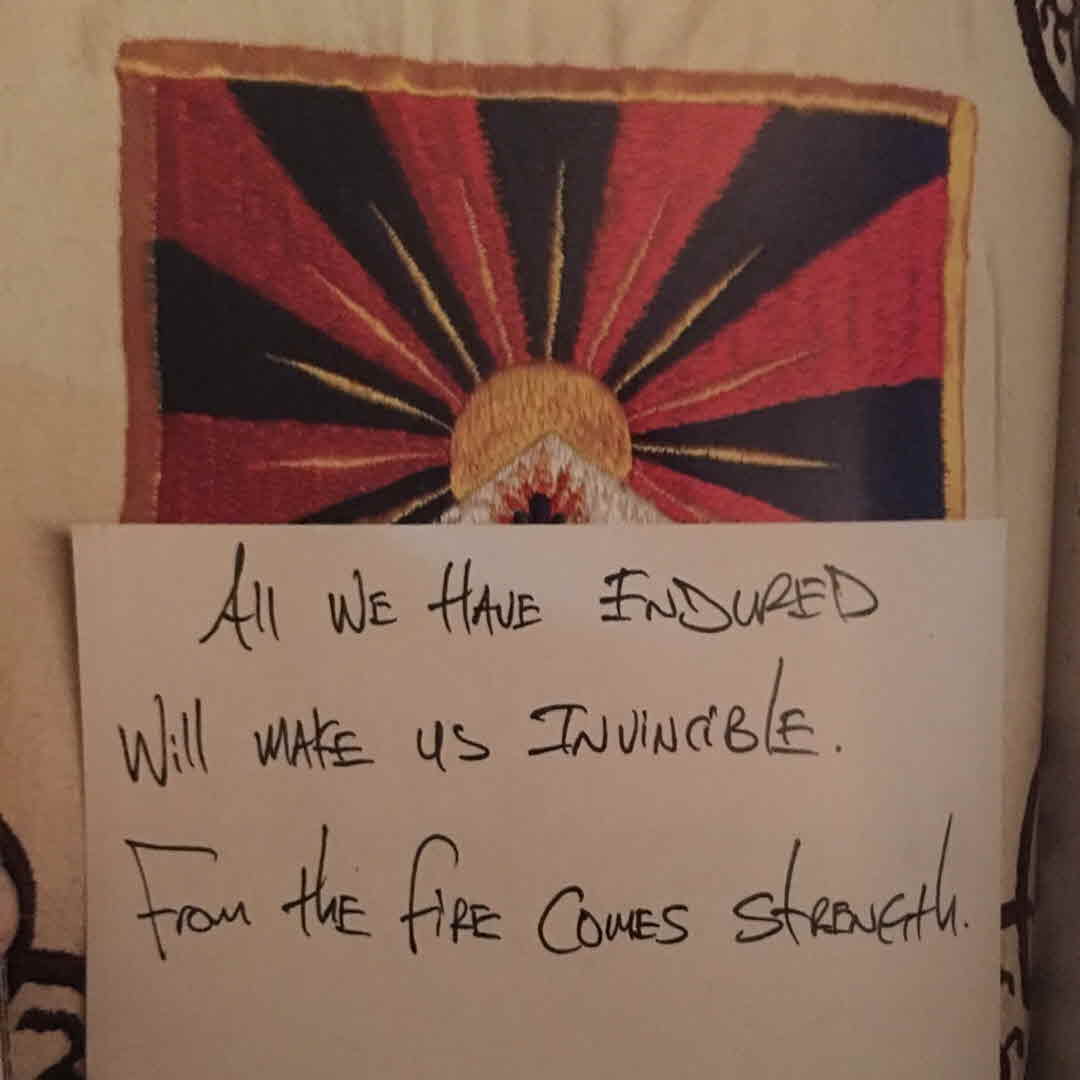 All WE HAVE ENDURED
Will MAKE US INVINCIBLE.
From thE fIRE COMES STRENGTh.